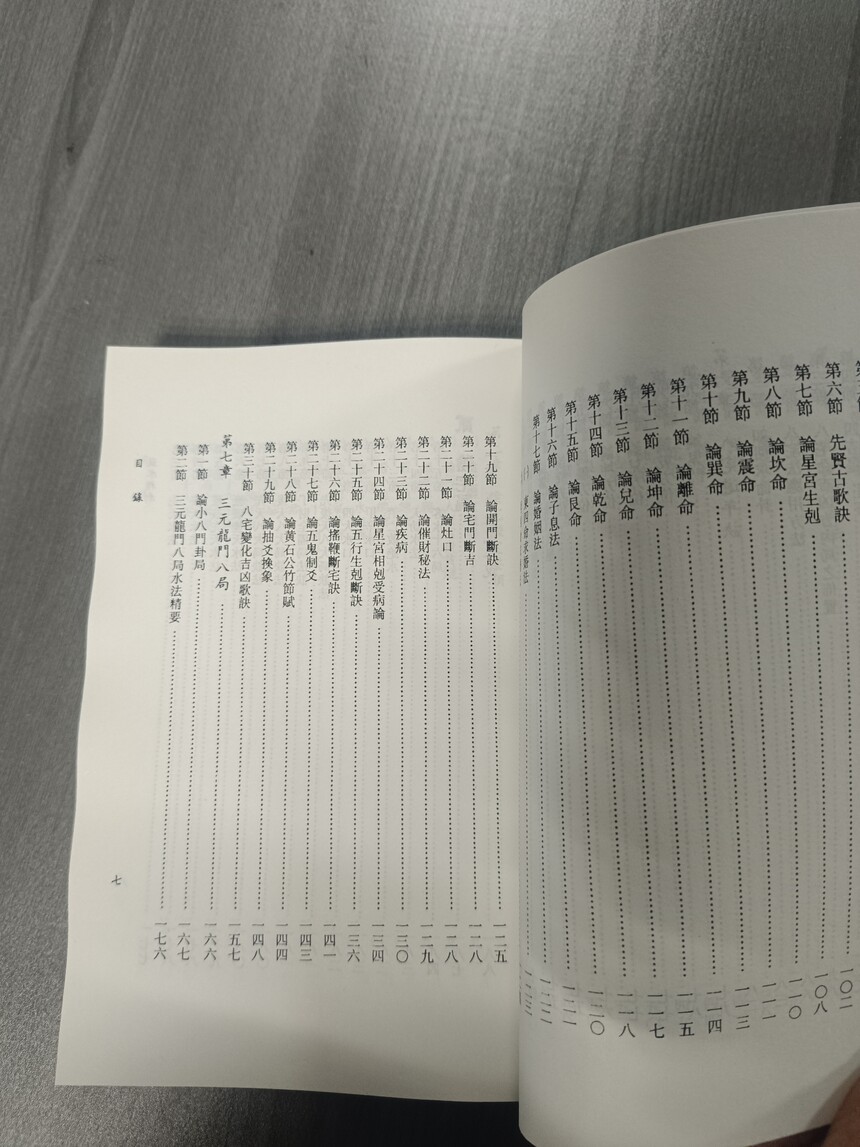 第六節 先賢古歌訣………一〇八
第七節 論星宮生剋………一一〇
第八節 論坎命………一一一
第九節 論震命………一一三
第十節 論巽命………一一四
第十一節 論離命………一一五
第十二節 論坤命………一一七
第十三節 論兌命………一一八
第十四節 論乾命………一二〇
第十五節 論艮命………一二一
第十六節 論子息法………一二二
第十七節 論婚姻法………一二三
東四命求婚法
第十九節 論開門斷訣………一二五
第二十節 論宅門斷吉………一二八
第二十一節 論灶口………一二八
第二十二節 論催財秘法………一二九
第二十三節 論疾病………一三〇
第二十四節 論星宮相剋受病論………一三四
第二十五節 論五行生剋斷訣………一三六
第二十六節 論搖鞭斷宅訣………一四一
第二十七節 論五鬼制爻………一四三
第二十八節 論黃石公竹節賦………一四四
第二十九節 論抽爻換象………一四八
第三十節 八宅變化吉凶歌訣………一五七
第七章 三元龍門八局………一六六
第一節 論小八門卦局………一六七
第二節 三元龍門八局水法精要………一七六
目錄
七